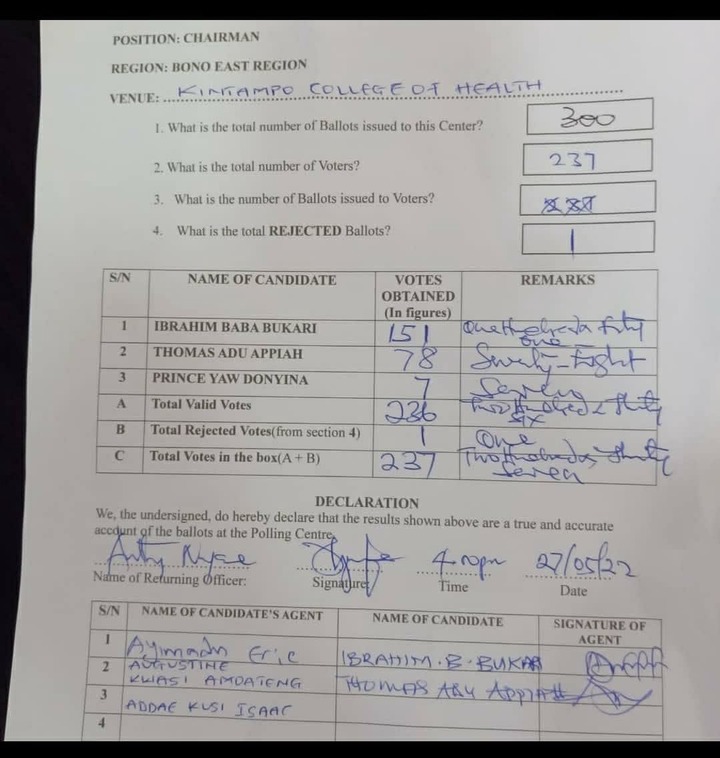 POSITION: CHAIRMAN
REGION: BONO EAST REGION
VENUE: KINTAMPO COLLEGE OF HEALTH
1. What is the total number of Ballots issued to this Center? 300
2. What is the total number of Voters? 237
3. What is the number of Ballots issued to Voters?
4. What is the total REJECTED Ballots? 1
S/N NAME OF CANDIDATE VOTES OBTAINED (In figures) REMARKS
1 IBRAHIM BABA BUKARI 151
2 THOMAS ADU APPIAH 78
3 PRINCE YAW DONYINA 7 Seven
A Total Valid Votes 236
B Total Rejected Votes(from section 4) 1 One
C Total Votes in the box(A + B) 237
DECLARATION
We, the undersigned, do hereby declare that the results shown above are a true and accurate
account of the ballots at the Polling Centre.
4:00pm 27/05/22
Name of Returning Officer: Signature Time Date
S/N NAME OF CANDIDATE'S AGENT NAME OF CANDIDATE SIGNATURE OF AGENT
1 Eric IBRAHIM.B.BUKAR
2 AUGUSTINE
KWASI AMOATENG THOMAS ADU APPIAH
3 ADDAE KUSI ISAAC
4